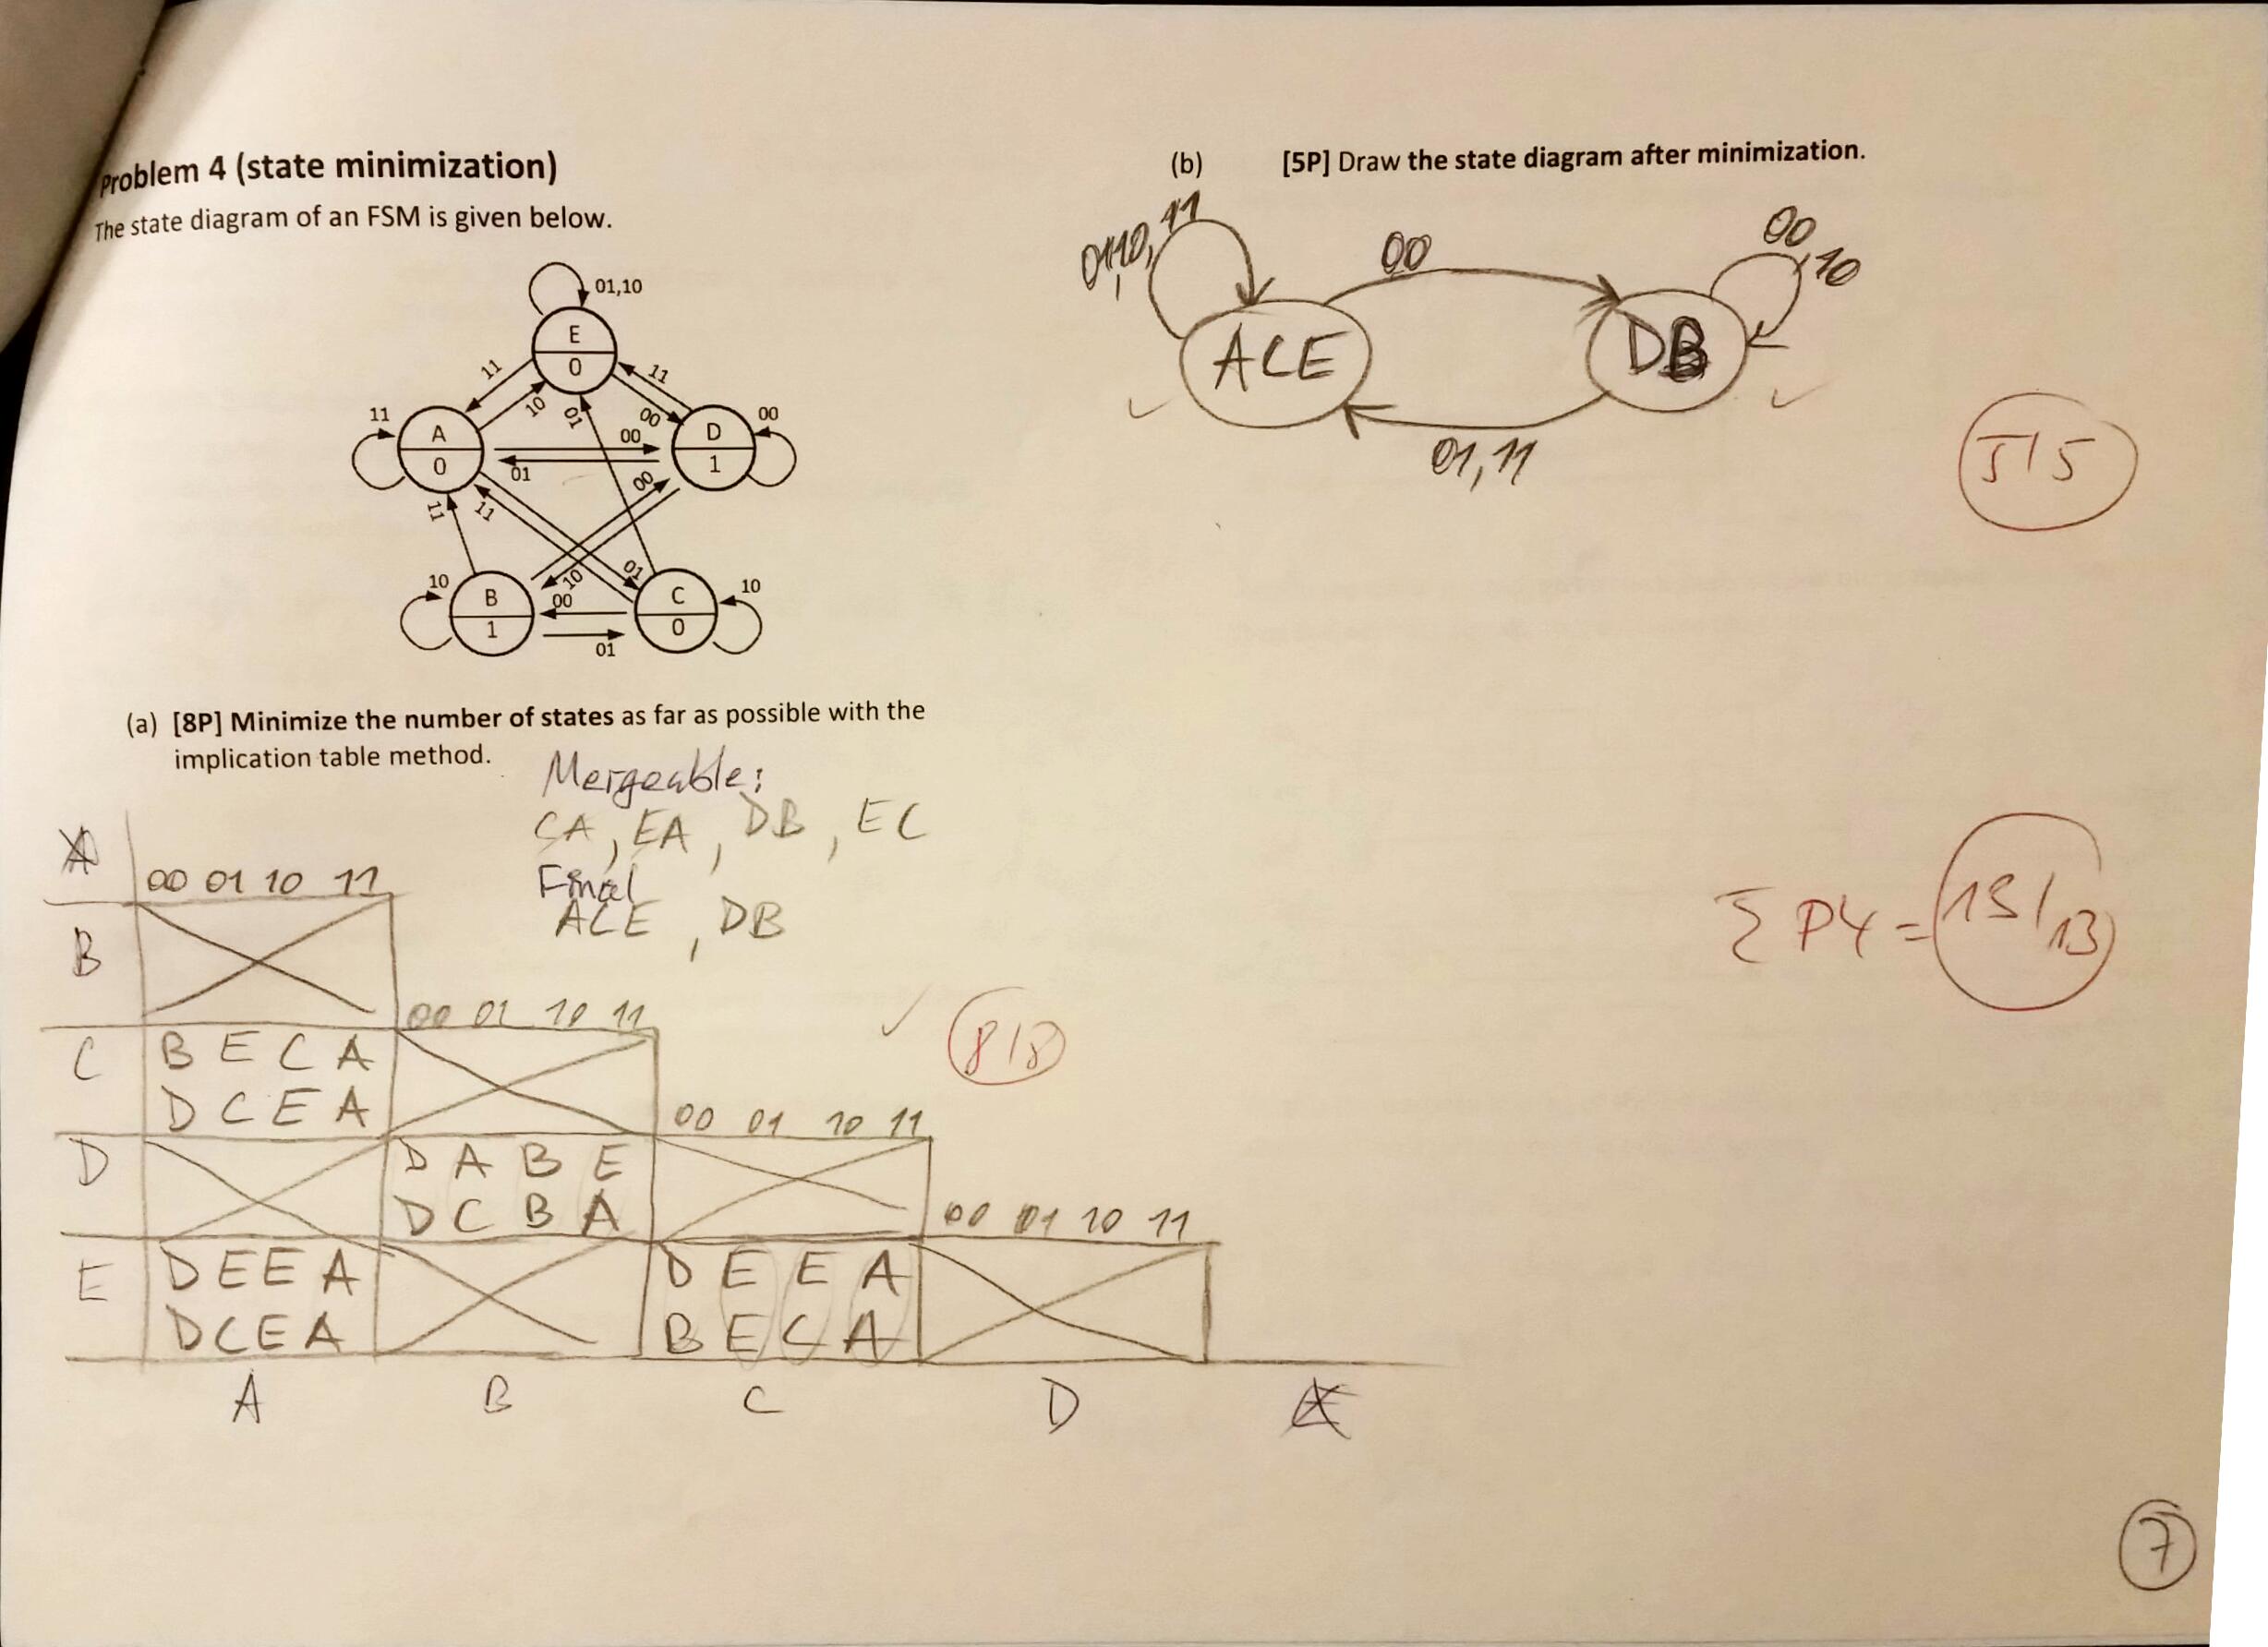 Problem 4 (state minimization)
The state diagram of an FSM is given below.
01,10
E
0
11
11
10
01
00
11
00
A
0
00
01
D
1
00
11
11
10
01
10
B
1
00
01
C
0
10
(a) [8P] Minimize the number of states as far as possible with the
implication table method.
Mergeable:
CA, EA, DB, EC
Final
ACE, DB
00 01 10 11
B
00 01 10 11
C
B E C A
D C E A
8/8
00 01 10 11
D
D A B E
D C B A
00 01 10 11
E
D E E A
D C E A
D E E A
B E C A
A B C D
(b) [5P] Draw the state diagram after minimization.
01,10, 11
00
00
,10
ACE
DB
01,11
5/5
Σ P4 = 13/13
7